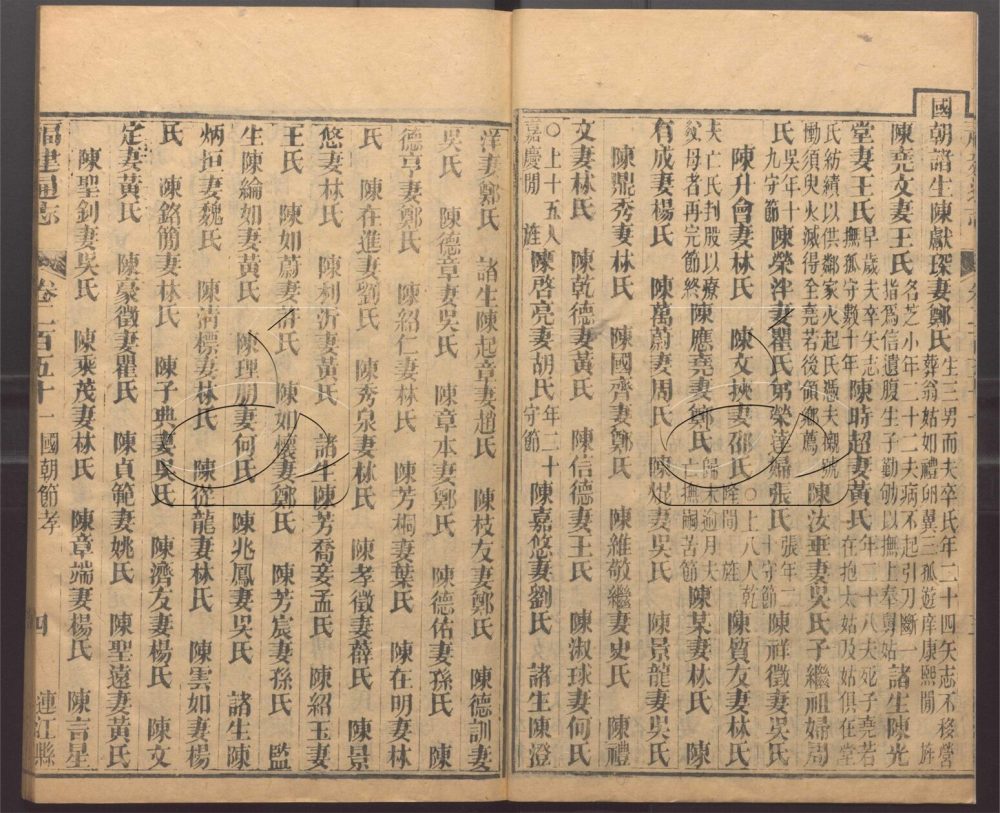 國朝諸生陳獻琛妻鄭氏生三男而夫卒氏年二十四矢志不移營葬翁姑如禮卵翼三孤遊庠康熙閒旌
陳堯文妻王氏名芝小年二十二夫病不起引刀斷一指爲信遺腹生子勤劬以撫上奉舅姑諸生陳光
堂妻王氏早歲夫卒矢志撫孤守數十年陳時超妻黃氏年二十八夫死子堯若在抱太姑及姑俱在堂
氏紡績以供鄰家火起氏憑夫棚號慟須臾火滅得全堯若後領鄉薦陳汝垂妻吳氏子繼祖婦周
氏吳年十九守節陳榮泮妻瞿氏弟榮達妻張氏張年二十守節陳祥徵妻吳氏
陳升會妻林氏 陳文挾妻邵氏○上八人乾隆間旌陳質友妻林氏
夫亡氏刲股以療父母者再完節終陳應堯妻鄭氏歸未逾月夫亡撫嗣苦節陳某妻林氏 陳
有成妻楊氏 陳萬蔚妻周氏 陳焜妻吳氏 陳景龍妻吳氏
陳鼎秀妻林氏 陳國齊妻鄭氏 陳維敬繼妻史氏 陳禮
文妻林氏 陳乾德妻黃氏 陳信德妻王氏 陳淑球妻何氏
○上十五人嘉慶閒旌陳啓亮妻胡氏年二十守節陳嘉悠妻劉氏 諸生陳澄
洋妻鄭氏 諸生陳起音妻趙氏 陳枝友妻鄭氏 陳德訓妻
吳氏 陳德章妻吳氏 陳章本妻鄭氏 陳德佑妻孫氏 陳
德亨妻鄭氏 陳紹仁妻林氏 陳芳桐妻葉氏 陳在明妻林
氏 陳在進妻劉氏 陳秀泉妻林氏 陳孝徵妻薛氏 陳景
悠妻林氏 陳利沂妻黃氏 諸生陳芳喬妾孟氏 陳紹玉妻
王氏 陳如蔚妻許氏 陳如懷妻鄭氏 陳芳宸妻孫氏 監
生陳綸如妻黃氏 陳理朋妻何氏 陳兆鳳妻吳氏 諸生陳
炳垣妻魏氏 陳淸標妻林氏 陳從龍妻林氏 陳雲如妻楊
氏 陳銘簡妻林氏 陳子典妻吳氏 陳濟友妻楊氏 陳文
定妻黃氏 陳豪徵妻瞿氏 陳貞範妻姚氏 陳聖遠妻黃氏
陳聖釗妻吳氏 陳乘茂妻林氏 陳章端妻楊氏 陳言星
福建通志 卷二百五十一 國朝節孝 四 連江縣